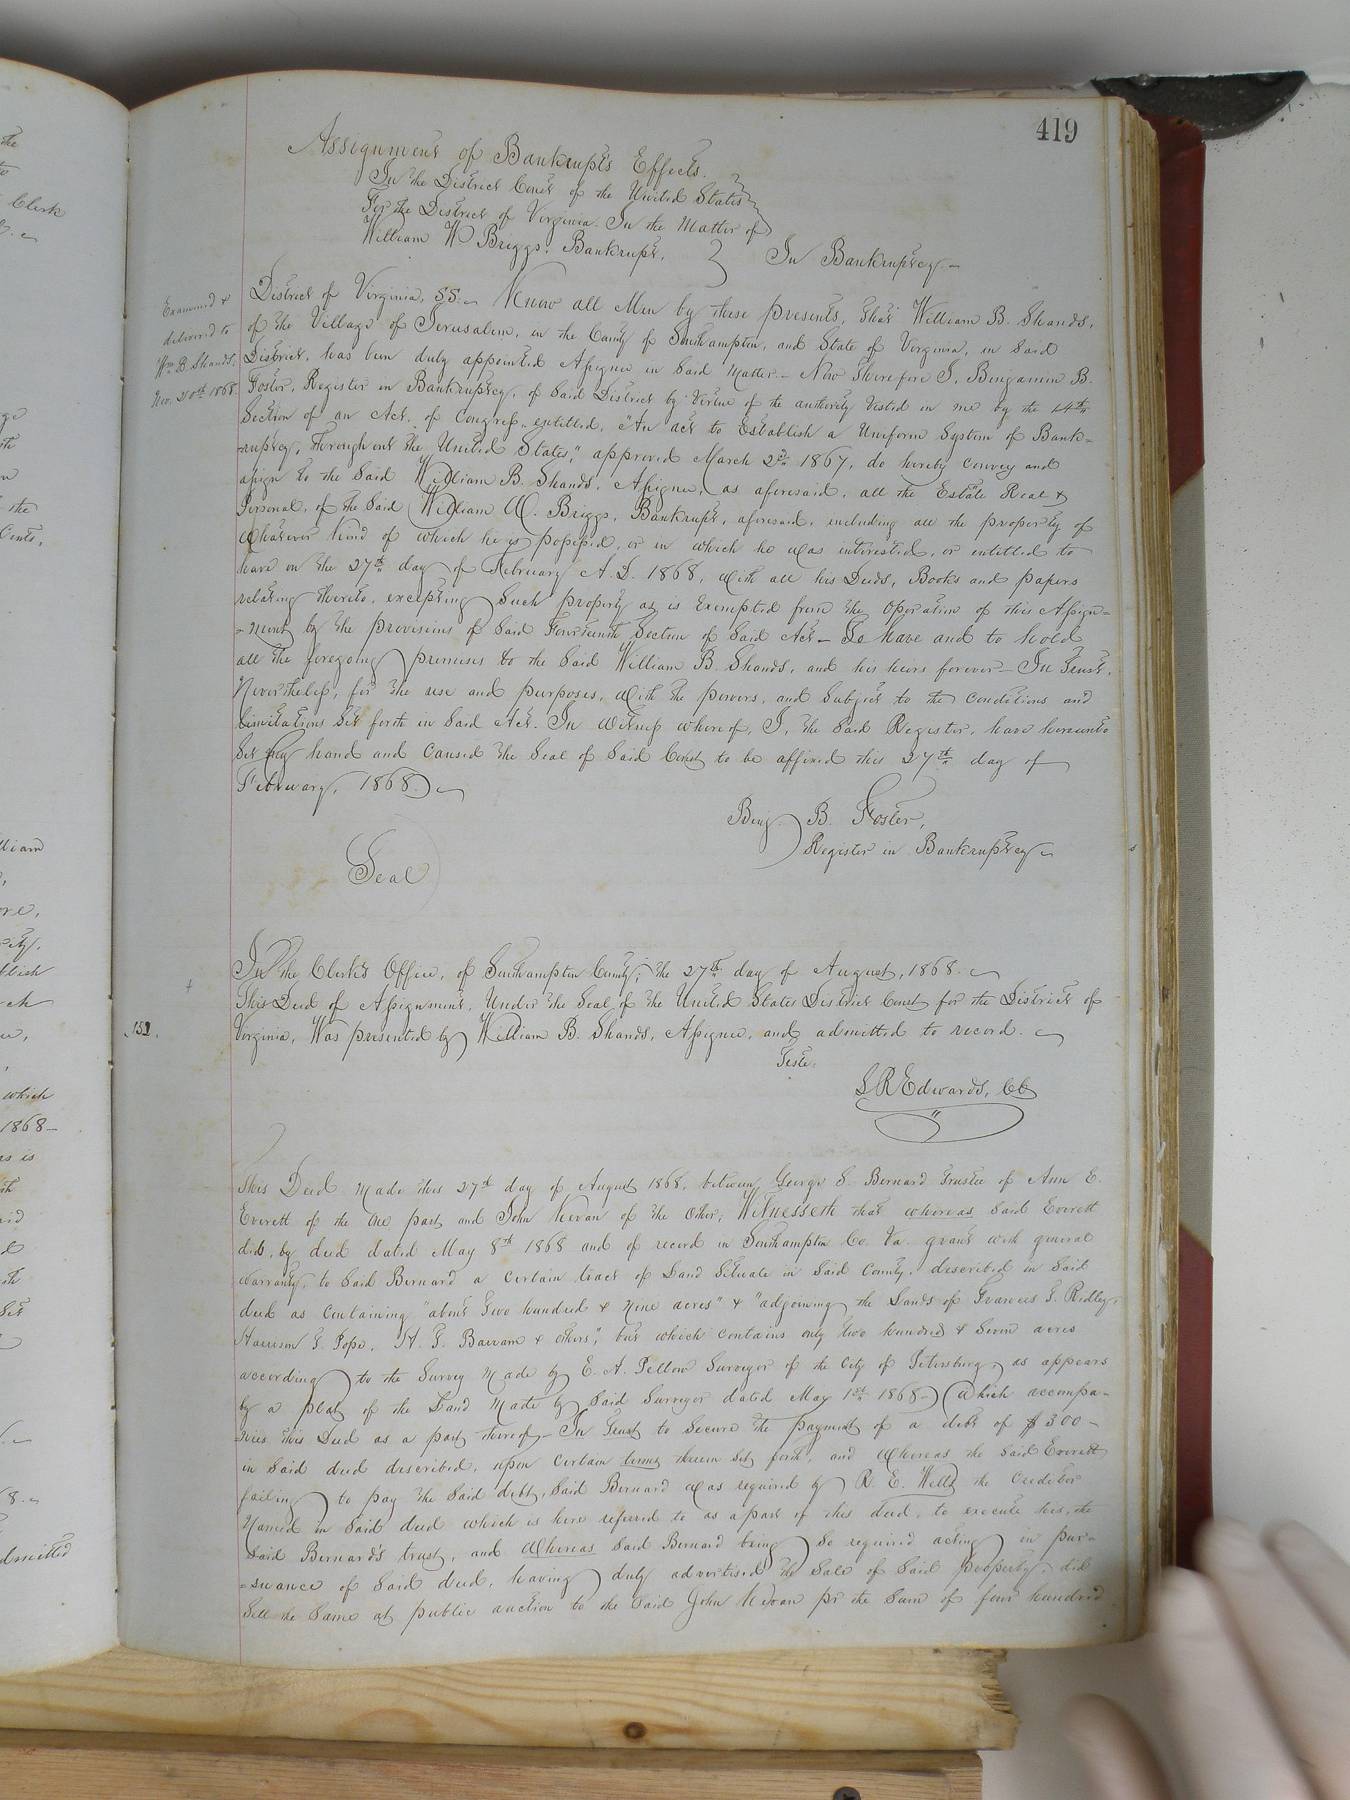 419
Assignment of Bankrupts Effects.
In the District Court of the United States
For the District of Virginia. In the Matter of
William W Briggs. Bankrupt. In Bankruptcy.
Examined &
delivered to
Wm. B. Shands.
Nov. 20th 1868
District of Virginia, SS. Know all Men by these presents, that William B. Shands,
of the Village of Jerusalem, in the County of Southampton, and State of Virginia, in said
District, has been duly appointed Assignee in said Matter. Now Therefore I, Benjamin B.
Foster, Register in Bankruptcy, of said District by Virtue of the authority Vested in me by the 14th
Section of an Act. of Congress entitled, "An act to Establish a Uniform System of Bank-
-ruptcy, throughout the United States," approved March 2d 1867, do hereby convey and
assign to the said William B. Shands, Assignee, as aforesaid, all the Estate Real &
Personal, of the Said William W. Briggs, Bankrupt, aforesaid, including all the property of
Whatever Kind of which he is possessed, or in which he was interested, or entitled to
have on the 27th day of February A.D. 1868, with all his Deeds, Books and papers
relating thereto, excepting such property as is Exempted from the Operation of this Assign-
-ment by the provisions of Said Fourteenth Section of said Act- To have and to hold
all the foregoing premises to the Said William B. Shands, and his heirs forever- In Trust,
Nevertheless, for the use and purposes, with the powers, and subject to the conditions and
limitations set forth in Said Act. In witness whereof, I, the said Register, have hereunto
Set my hand and Caused the Seal of Said Court to be affixed this 27th day of
February, 1868.
Benj. B. Foster,
Register in Bankruptcy
Seal
In the Clerk's Office, of Southampton County, the 27th day of August, 1868.
This Deed of Assignment, Under the Seal of the United States District Court for the District of
Virginia, Was presented by William B. Shands, Assignee, and admitted to record.
Teste,
L R Edwards, CC
152.
This Deed made this 27th day of August 1868, between George S. Bernard Trustee of Ann E.
Everett of the one part and John Kevan of the other; Witnesseth that whereas said Everett
did, by deed dated May 8th 1868 and of record in Southampton Co. Va. grant with general
warranty, to Said Bernard a certain tract of Land Situate in Said County, described in Said
deed as Containing "about Two hundred & Nine acres" & "adjoining the Lands of Frances T. Ridley,
Harrison T. Pope, H. T. Barram & others", but which contains only two hundred & Seven acres
according to the Survey made by E. A. Pellow Surveyor of the City of Petersburg, as appears
by a plat of the Land made by Said Surveyor dated May 1st 1868 - which accompa-
nies this Deed as a part thereof - In Trust to Secure the payment of a debt of $300-
in said deed described, upon certain terms therein set forth, and Whereas the said Everett
failing to pay the Said debt, Said Bernard was required by R. E. Wells the Creditor
Named in said deed which is here referred to as a part of this deed, to execute his, the
Said Bernard's trust, and Whereas Said Bernard being so required acting in pur-
-suance of Said deed, having duly advertised the Sale of said property, did
Sell the Same at public auction to the said John Kevan for the Sum of four hundred